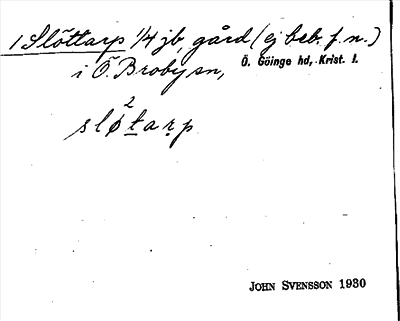 1 Slöttarp 1/4 jb, gård (ej beb. f. n.)
i Ö. Broby sn, Ö. Göinge hd, Krist. l.
2
sløtarp
JOHN SVENSSON 1930